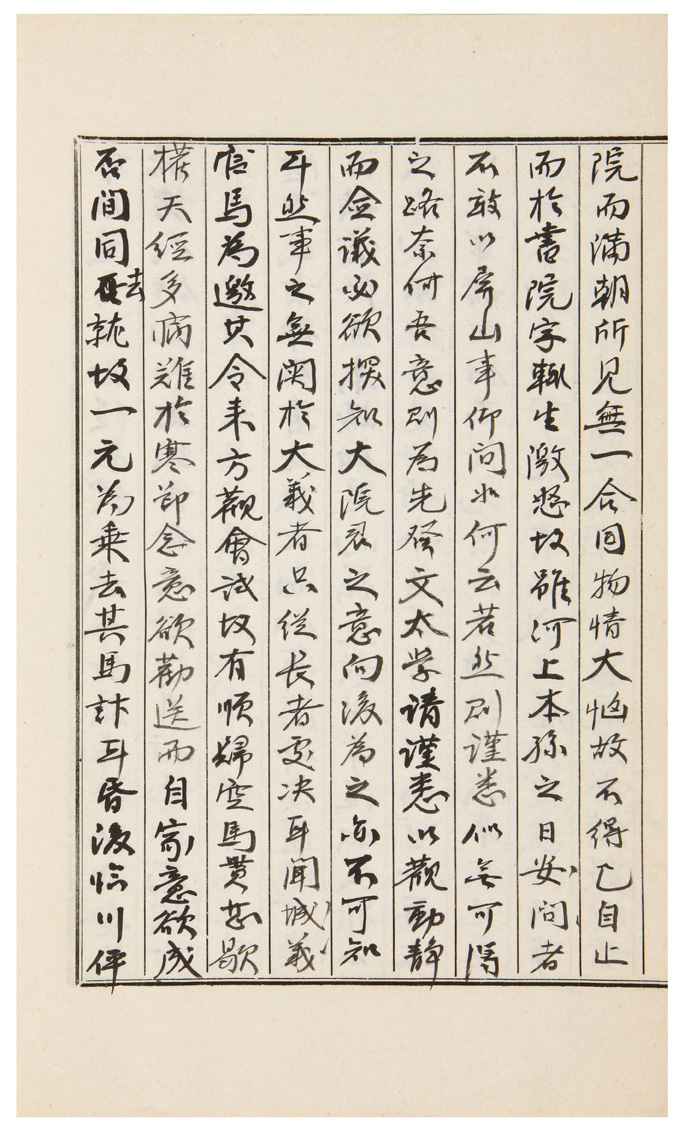 院而滿朝所見無一合同物情大恼故不得已自止
而於書院字輒生激怒故雖河上本孫之日安問者
不敢以屏山事仰問此何云若然則謹悉似無可得
之路奈何吾意則為先發文太学請謹悉以觀動静
而僉議必欲探知大院君之意向後為之亦不可知
耳然事之無関於大義者只從長者更决耳聞城義
官馬為邀其令来方觀會試故有順歸空馬貰甚歇
横天經多病難於寒節念意欲勸送而自家意欲成
否間同去就故一元為乗去其馬計耳昏後临川伻